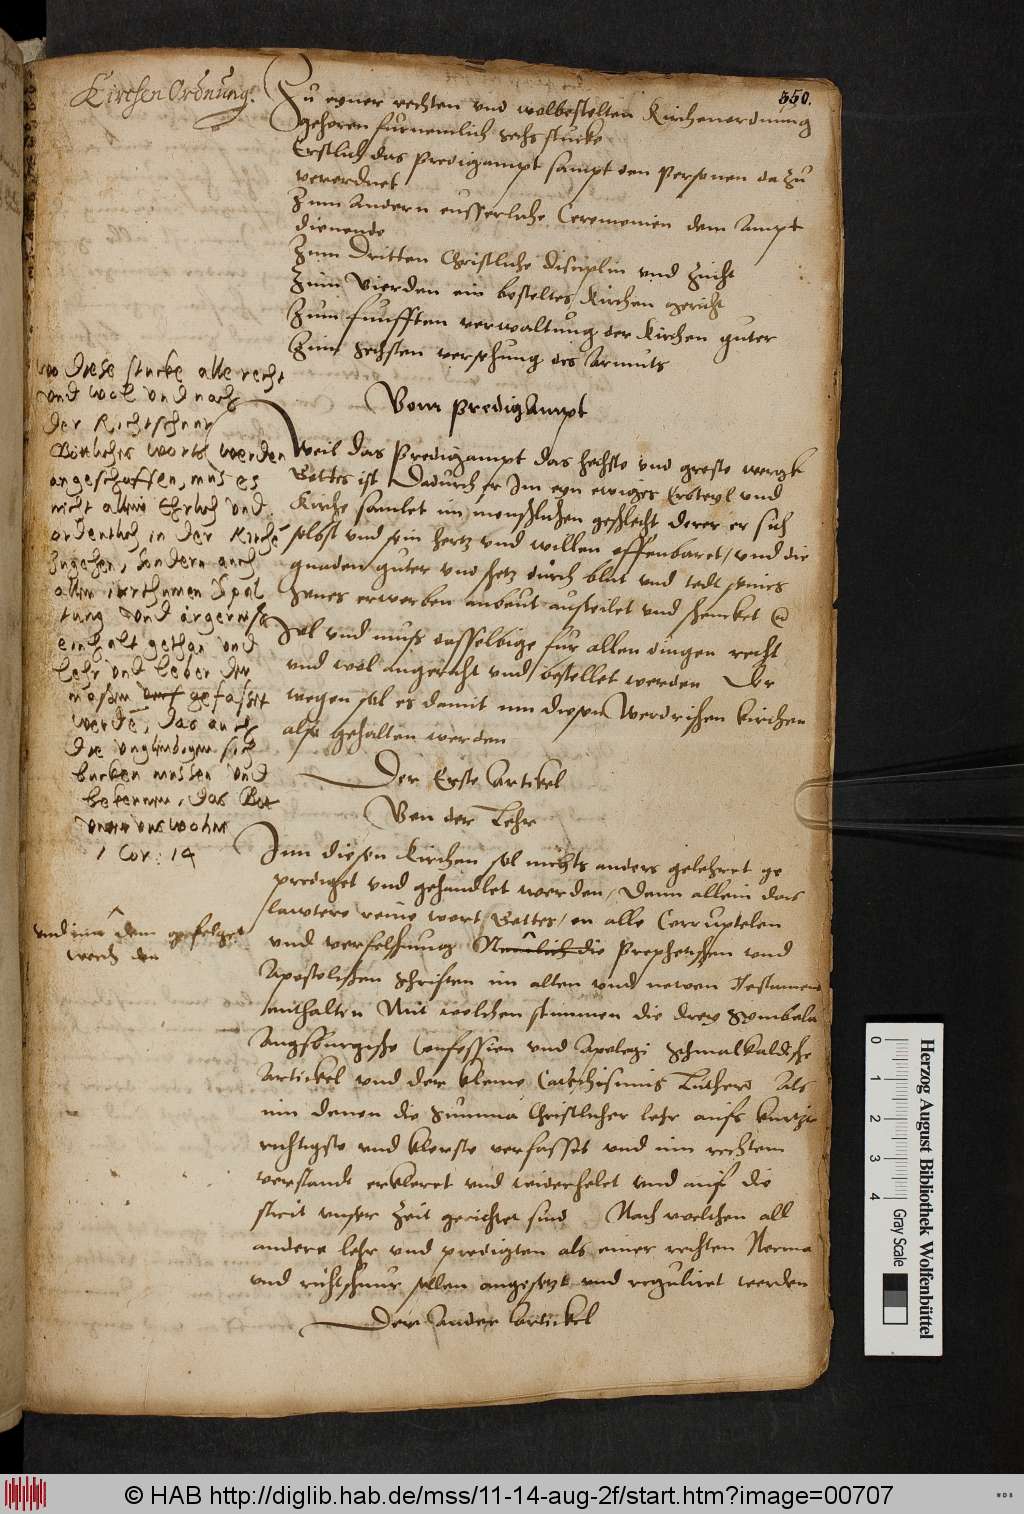 Kirchen Ordnung.
350.
Zu eyner rechten vnd wolbestelten Kirchenordnung
gehoren furnemlich sechs stucke
Erstlich das Predigampt sampt den Personen da zu
verordnet
Zum Andern eusserliche Ceremonien dem Ampt
dienende
Zum Dritten Christliche disciplin vnd Zucht
Zum Vierden ein bestaltes Kirchen gericht
Zum funfften verwaltung der Kirchen guter
Zum Sechsten versehung des Armuts
Vom PredigAmpt
Weil das Predigampt das hochste vnd groste werck
Gottes ist Dadurch er Im eyn ewiges Erbteyl vnd
Kirche samlet im menschlichen geschlecht derer er sich
selbst vnd sein hertz vnd willen offenbaret / vnd die
gnaden guter vnd schetz durch blut vnd todt seines
Sones erworben anbeut austeilet vnd schencket
Sol vnd mus dasselbige fur allen dingen recht
vnd wol angericht vnd bestellet werden Der
wegen sol es damit inn diesen Werdrischen kirchen
also gehalten werden
wo diese stucke alle recht
vnd wol vnd nach
der Richtschnur
Gotliches worts werden
angeschaffen, mus es
nicht allein Ehrlich vnd
ordentlich in der Kirche
zugehen, sondern auch
allen irrthumen Spal
tung vnd ärgernis
einhalt gethan vnd
lehr vnd leben der
massen gefasset
werde, das auch
die vngleubigen sich
bucken mussen vnd
bekennen, das Got
vnter vns wohn
1 Cor: 14
Der Erste Artikel
Von der Lehr
Inn diesen Kirchen sol nichts anders gelehret ge
prediget vnd gehandlet werden / Dann allein das
lawtere reine wort Gottes / on alle Corruptelen
vnd verfelschung Nemlich die Prophetischen vnd
Apostolischen schriften im alten vnd newen Testament
enthalten Mit welchen stimmen die drey Symbola
Augsburgische Confession vnd Apologi Schmalkaldische
Artickel vnd der kleine Catechismus Lutheri Als
inn denen die Summa Christlicher lehr aufs kurtzte
richtigste vnd klerste verfasset vnd inn rechtem
verstande erkleret vnd widerholet vnd auf die
streit vnser Zeit gerichtet sind Nach welchen all
andere lehr vnd predigten als einer rechten Norma
vnd richtschnur sollen angesetzt vnd regulirt werden
vnd inn dem gefolget
werden
Der Ander Artickel
Herzog August Bibliothek Wolfenbüttel
0 1 2 3 4 Gray Scale
© HAB http://diglib.hab.de/mss/11-14-aug-2f/start.htm?image=00707